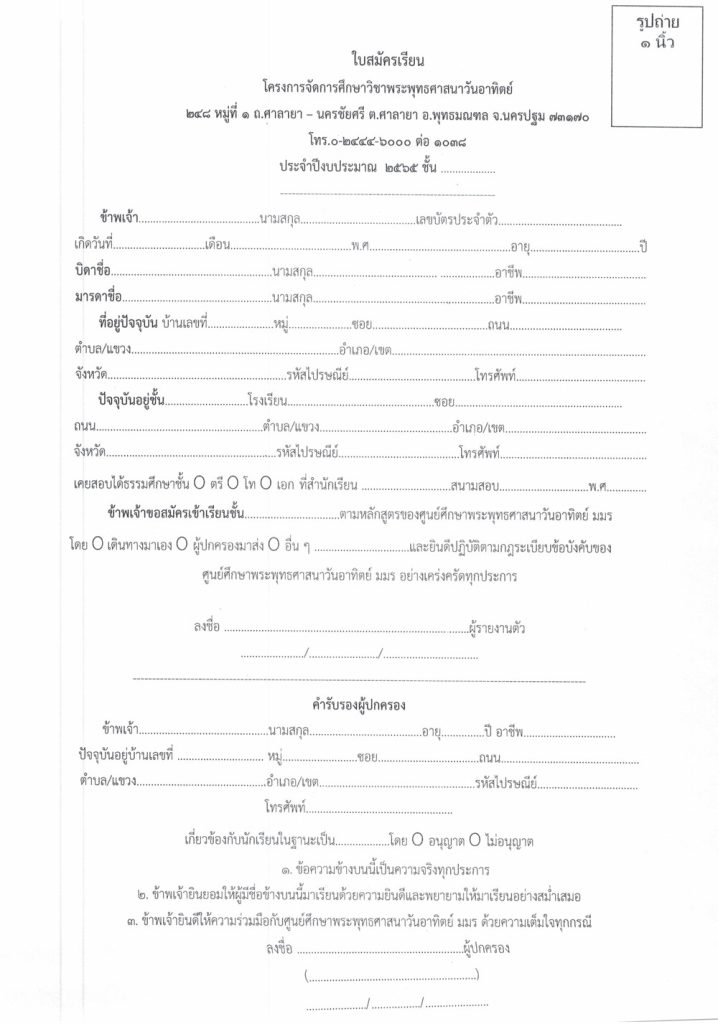 รูปถ่าย
๑ นิ้ว
ใบสมัครเรียน
โครงการจัดการศึกษาวิชาพระพุทธศาสนาวันอาทิตย์
๒๔๘ หมู่ที่ ๑ ถ.ศาลายา – นครชัยศรี ต.ศาลายา อ.พุทธมณฑล จ.นครปฐม ๗๓๑๗๐
โทร.๐-๒๔๔๔-๖๐๐๐ ต่อ ๑๐๓๘
ประจำปีงบประมาณ ๒๕๖๕ ชั้น ..................
ข้าพเจ้า....................................นามสกุล...................................เลขบัตรประจำตัว.....................................
เกิดวันที่............................เดือน....................................พ.ศ..........................................อายุ.................................ปี
บิดาชื่อ................................................นามสกุล..................................... ................อาชีพ.....................................
มารดาชื่อ.............................................นามสกุล......................................................อาชีพ.....................................
ที่อยู่ปัจจุบัน บ้านเลขที่....................หมู่...................ซอย...................................ถนน........................................
ตำบล/แขวง..............................................................อำเภอ/เขต............................................................................
จังหวัด.....................................................รหัสไปรษณีย์......................................โทรศัพท์.......................................
ปัจจุบันอยู่ชั้น.........................โรงเรียน............................................ซอย..................................................
ถนน..................................................ตำบล/แขวง........................................อำเภอ/เขต..........................................
จังหวัด...................................................รหัสไปรษณีย์....................................โทรศัพท์............................................
เคยสอบได้ธรรมศึกษาชั้น O ตรี O โท O เอก ที่สำนักเรียน ...........................สนามสอบ...........................พ.ศ............
ข้าพเจ้าขอสมัครเข้าเรียนชั้น............................ตามหลักสูตรของศูนย์ศึกษาพระพุทธศาสนาวันอาทิตย์ มมร
โดย O เดินทางมาเอง O ผู้ปกครองมาส่ง O อื่น ๆ ............................และยินดีปฏิบัติตามกฎระเบียบข้อบังคับของ
ศูนย์ศึกษาพระพุทธศาสนาวันอาทิตย์ มมร อย่างเคร่งครัดทุกประการ
ลงชื่อ .........................................................................ผู้รายงานตัว
.................../...................../............................
คำรับรองผู้ปกครอง
ข้าพเจ้า.......................................นามสกุล..................................อายุ.............ปี อาชีพ............................
ปัจจุบันอยู่บ้านเลขที่ .......................... หมู่......................ซอย...............................ถนน.........................................
ตำบล/แขวง.......................................อำเภอ/เขต...............................................รหัสไปรษณีย์..............................
โทรศัพท์............................................
เกี่ยวข้องกับนักเรียนในฐานะเป็น................โดย O อนุญาต O ไม่อนุญาต
๑. ข้อความข้างบนนี้เป็นความจริงทุกประการ
๒. ข้าพเจ้ายินยอมให้ผู้มีชื่อข้างบนนี้มาเรียนด้วยความยินดีและพยายามให้มาเรียนอย่างสม่ำเสมอ
๓. ข้าพเจ้ายินดีให้ความร่วมมือกับศูนย์ศึกษาพระพุทธศาสนาวันอาทิตย์ มมร ด้วยความเต็มใจทุกกรณี
ลงชื่อ ..................................................ผู้ปกครอง
(..................................................)
.................../.............../...................